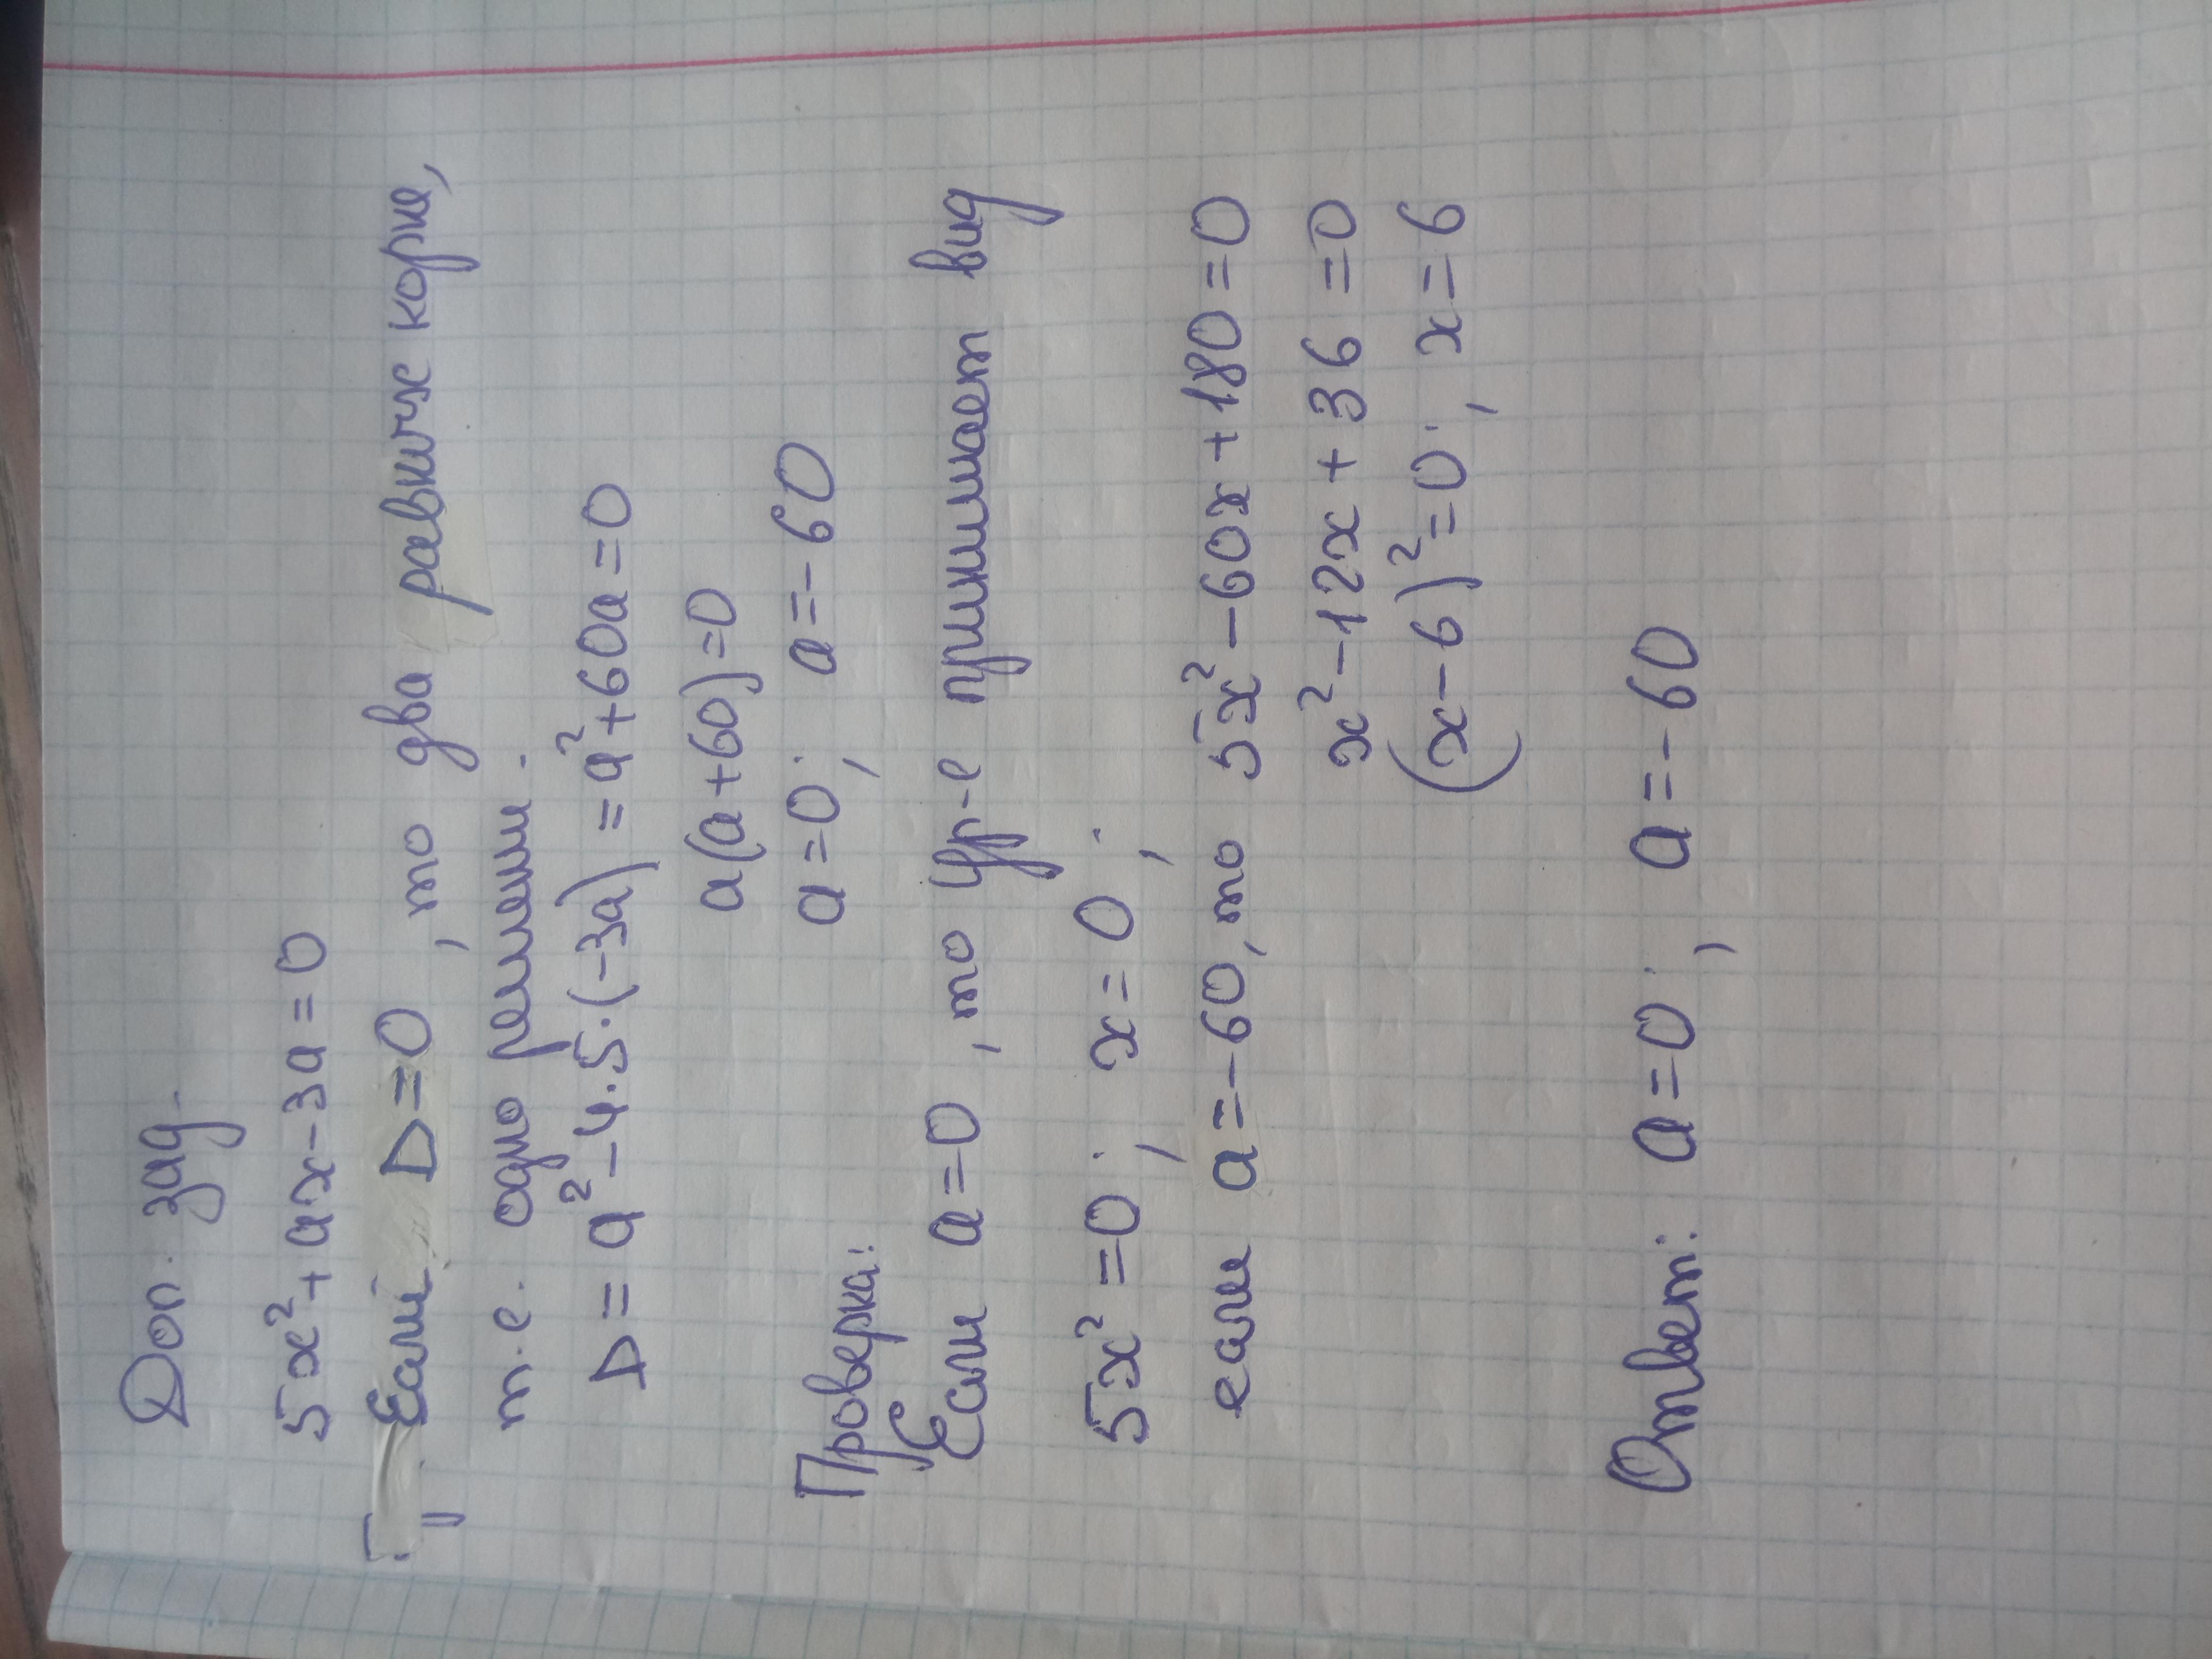 Доп. зад.
5x²+ax-3a=0
Если D=0, то два равных корня,
т.е. одно решени.
D=a²-4.5.(-3a)=a²+60a=0
a(a+60)=0
a=0; a=-60
Проверка:
Если a=0, то ур-е принимает вид
5x²=0; x=0;
если a=-60, то 5x²-60x+180=0
x²-12x+36=0
(x-6)²=0; x=6
Ответ: a=0; a=-60